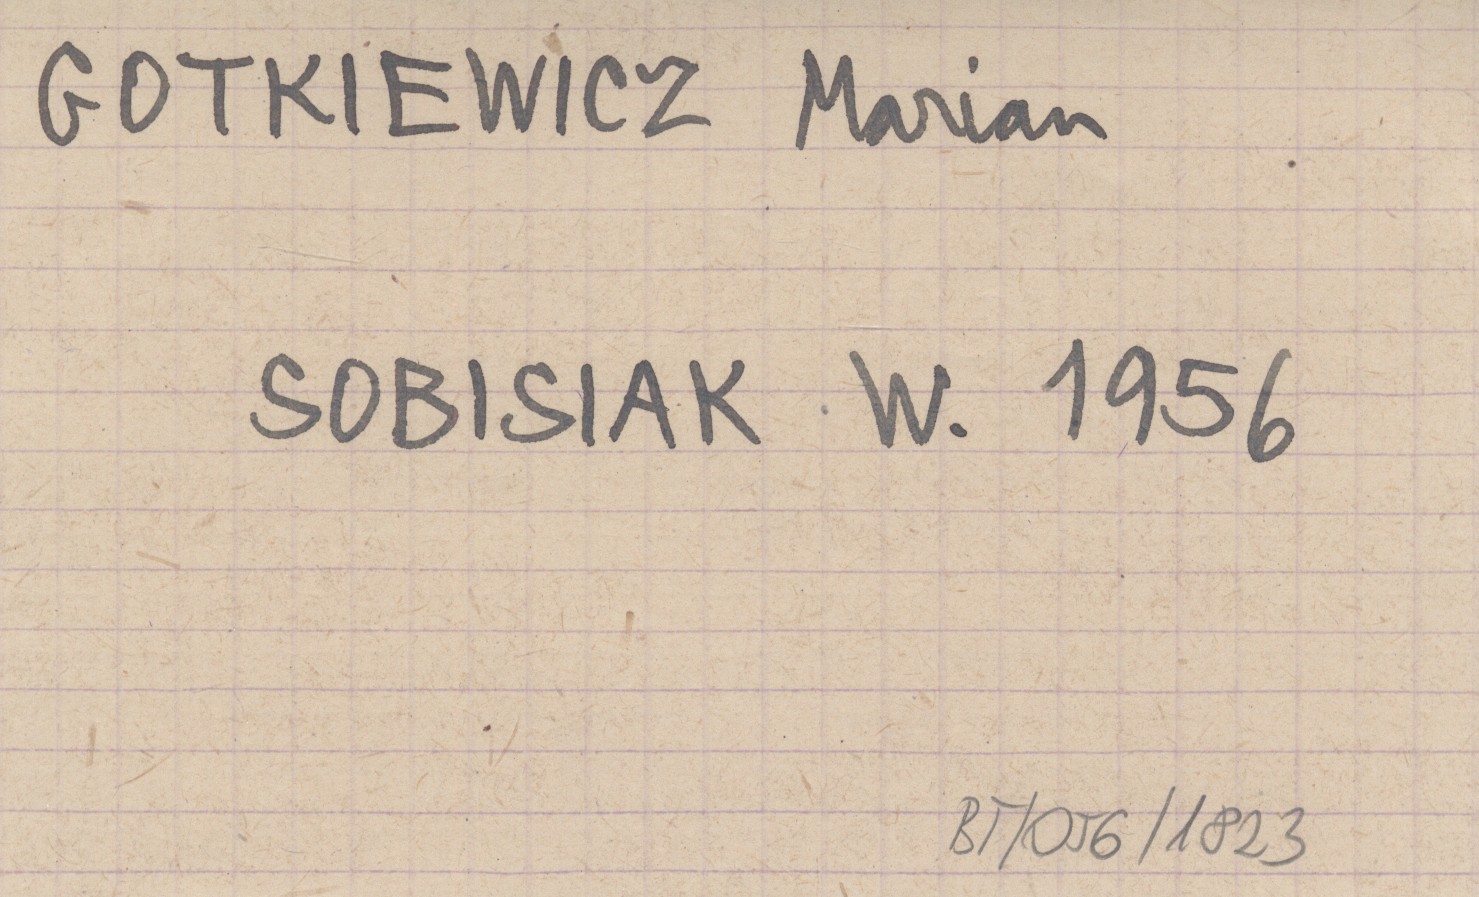 GOTKIEWICZ Marian
SOBISIAK W. 1956
BT/056/1823